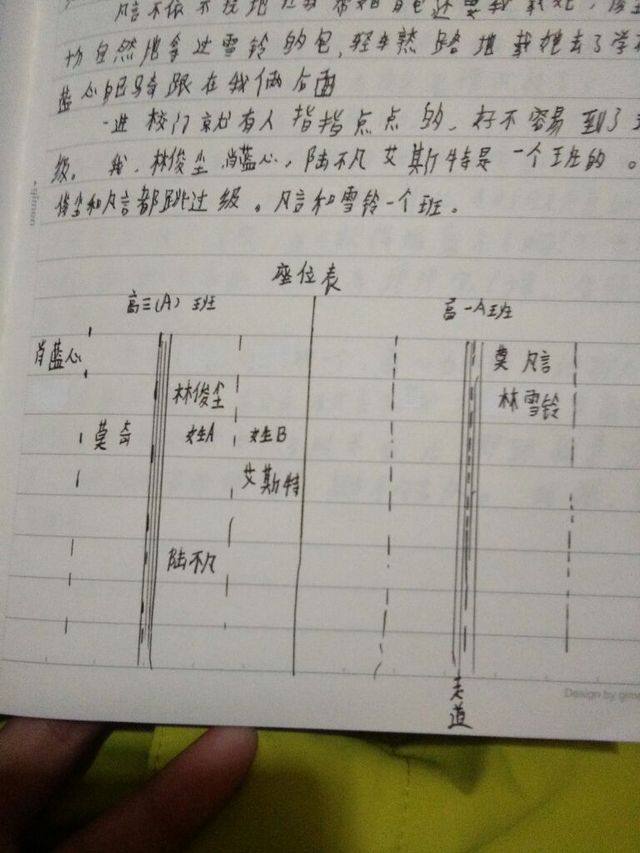 凡言不依不挠地
切自然地拿过雪铃的包,轻车熟路地载她去了学
蓝心自己骑跟在我俩后面
一进校门就有人指指点点的,好不容易到了
级。我,林俊尘,肖蓝心,陆不凡艾斯特是一个班的。
俊尘和凡言都跳过级。凡言和雪铃一个班。
座位表
高三(A)班
高一A班
肖蓝心
莫凡言
林俊尘
林雪铃
莫奇
女生A
女生B
艾斯特
陆不凡
走道
Design by gimon
gimon